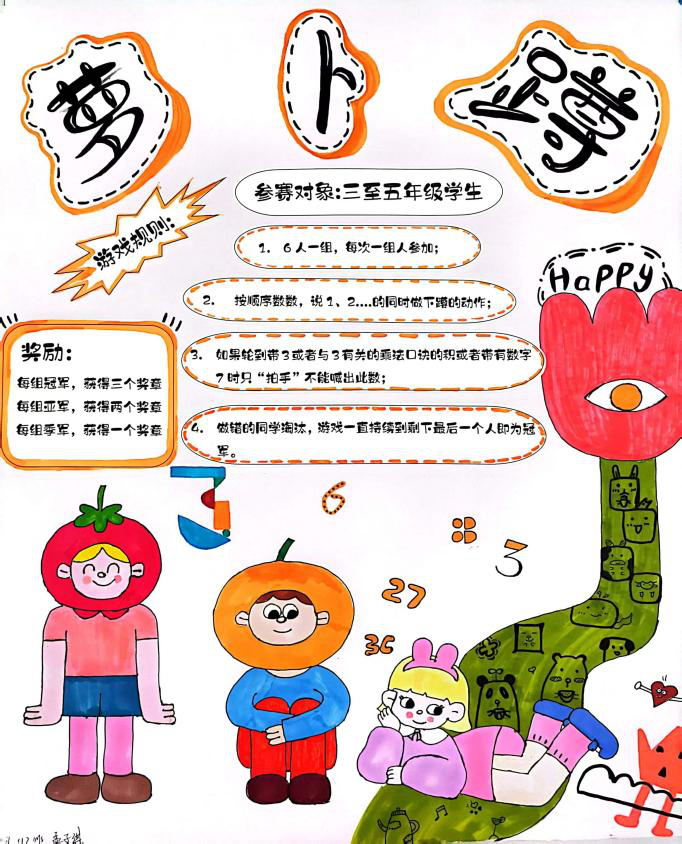 萝卜蹲
参赛对象:三至五年级学生
游戏规则:
1. 6人一组，每次一组人参加；
2. 按顺序数数，说1、2....的同时做下蹲的动作；
3. 如果轮到带3或者与3有关的乘法口诀的积或者带有数字
7时只“拍手”不能喊出此数；
4. 做错的同学淘汰，游戏一直持续到剩下最后一个人即为冠
军。
HaPPy
奖励:
每组冠军，获得三个奖章
每组亚军，获得两个奖章
每组季军，获得一个奖章
3
6
3
27
36